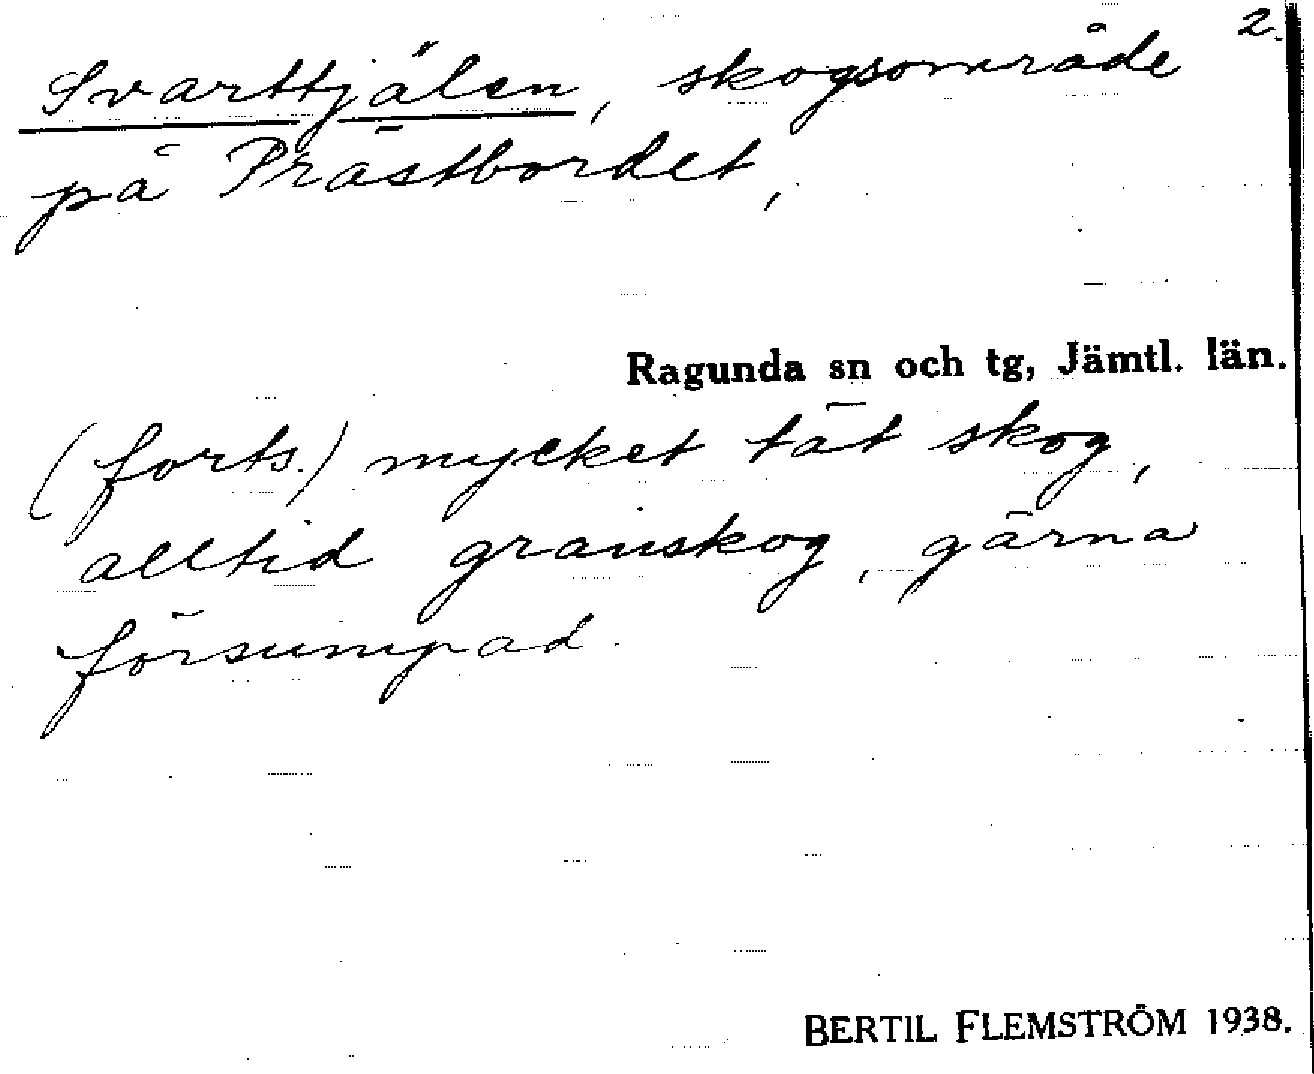 2.
Svarttjälen, skogsområde
på Prästbordet,
Ragunda sn och tg, Jämtl. län.
(forts.) mycket tät skog,
alltid granskog, gärna
försumpad.
BERTIL FLEMSTRÖM 1938.